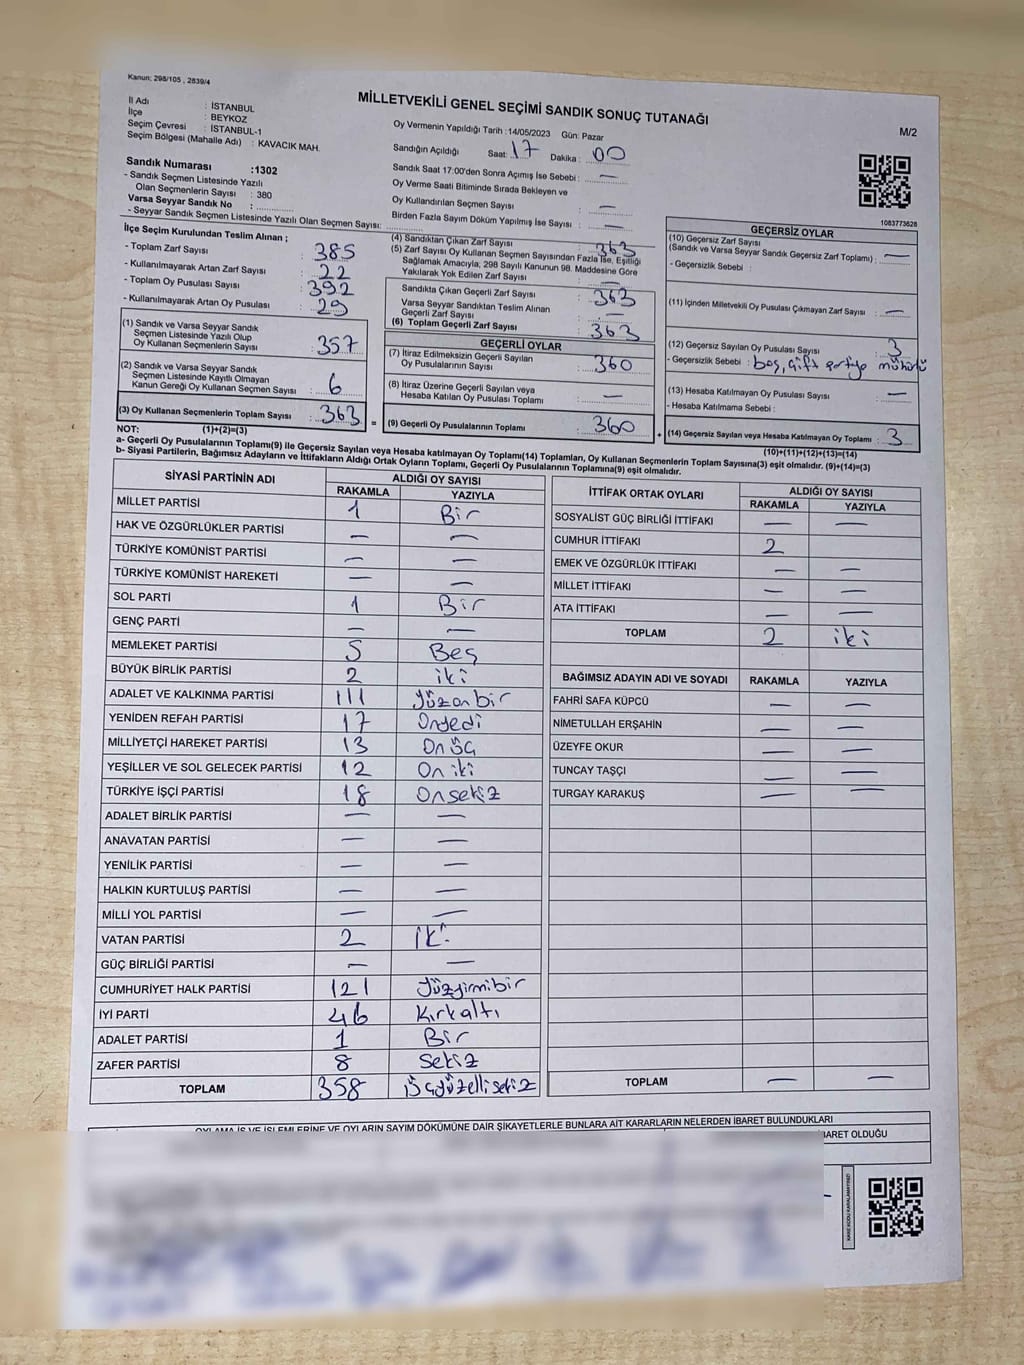 Kanun; 298/105 , 2839/4
MİLLETVEKİLİ GENEL SEÇİMİ SANDIK SONUÇ TUTANAĞI
M/2
İl Adı : İSTANBUL
İlçe : BEYKOZ
Seçim Çevresi : İSTANBUL-1
Seçim Bölgesi (Mahalle Adı) : KAVACIK MAH.
Sandık Numarası :1302
- Sandık Seçmen Listesinde Yazılı
Olan Seçmenlerin Sayısı : 380
Varsa Seyyar Sandık No :
- Seyyar Sandık Seçmen Listesinde Yazılı Olan Seçmen Sayısı:
Oy Vermenin Yapıldığı Tarih :14/05/2023 Gün: Pazar
Sandığın Açıldığı Saat: 17 Dakika : 00
Sandık Saat 17:00'den Sonra Açımış İse Sebebi : —
Oy Verme Saati Bitiminde Sırada Bekleyen ve
Oy Kullandırılan Seçmen Sayısı : —
Birden Fazla Sayım Döküm Yapılmış İse Sayısı : —
1083773628
İlçe Seçim Kurulundan Teslim Alınan ;
- Toplam Zarf Sayısı : 385
- Kullanılmayarak Artan Zarf Sayısı : 22
- Toplam Oy Pusulası Sayısı : 392
- Kullanılmayarak Artan Oy Pusulası : 29
(1) Sandık ve Varsa Seyyar Sandık
Seçmen Listesinde Yazılı Olup
Oy Kullanan Seçmenlerin Sayısı : 357
(2) Sandık ve Varsa Seyyar Sandık
Seçmen Listesinde Kayıtlı Olmayan
Kanun Gereği Oy Kullanan Seçmen Sayısı : 6
(3) Oy Kullanan Seçmenlerin Toplam Sayısı : 363
(4) Sandıktan Çıkan Zarf Sayısı : 363
(5) Zarf Sayısı Oy Kullanan Seçmen Sayısından Fazla İse, Eşitliği
Sağlamak Amacıyla, 298 Sayılı Kanunun 98. Maddesine Göre
Yakılarak Yok Edilen Zarf Sayısı : —
Sandıkta Çıkan Geçerli Zarf Sayısı : 363
Varsa Seyyar Sandıktan Teslim Alınan
Geçerli Zarf Sayısı : —
(6) Toplam Geçerli Zarf Sayısı : 363
GEÇERLİ OYLAR
(7) İtiraz Edilmeksizin Geçerli Sayılan
Oy Pusulalarının Sayısı : 360
(8) İtiraz Üzerine Geçerli Sayılan veya
Hesaba Katılan Oy Pusulası Toplamı : —
= (9) Geçerli Oy Pusulalarının Toplamı : 360
GEÇERSİZ OYLAR
(10) Geçersiz Zarf Sayısı
(Sandık ve Varsa Seyyar Sandık Geçersiz Zarf Toplamı) : —
- Geçersizlik Sebebi :
(11) İçinden Milletvekili Oy Pusulası Çıkmayan Zarf Sayısı : —
(12) Geçersiz Sayılan Oy Pusulası Sayısı : 3
- Geçersizlik Sebebi : boş, çift partiye mühürlü
(13) Hesaba Katılmayan Oy Pusulası Sayısı : —
- Hesaba Katılmama Sebebi :
+ (14) Geçersiz Sayılan veya Hesaba Katılmayan Oy Toplamı : 3
NOT: (1)+(2)=(3) (10)+(11)+(12)+(13)=(14)
a- Geçerli Oy Pusulalarının Toplamı(9) ile Geçersiz Sayılan veya Hesaba katılmayan Oy Toplamı(14) Toplamları, Oy Kullanan Seçmenlerin Toplam Sayısına(3) eşit olmalıdır. (9)+(14)=(3)
b- Siyasi Partilerin, Bağımsız Adayların ve İttifakların Aldığı Ortak Oyların Toplamı, Geçerli Oy Pusulalarının Toplamına(9) eşit olmalıdır.
SİYASİ PARTİNİN ADI ALDIĞI OY SAYISI
RAKAMLA YAZIYLA
MİLLET PARTİSİ 1 Bir
HAK VE ÖZGÜRLÜKLER PARTİSİ — —
TÜRKİYE KOMÜNİST PARTİSİ — —
TÜRKİYE KOMÜNİST HAREKETİ — —
SOL PARTİ 1 Bir
GENÇ PARTİ — —
MEMLEKET PARTİSİ 5 Beş
BÜYÜK BİRLİK PARTİSİ 2 iki
ADALET VE KALKINMA PARTİSİ 111 Yüzonbir
YENİDEN REFAH PARTİSİ 17 Onyedi
MİLLİYETÇİ HAREKET PARTİSİ 13 Onüç
YEŞİLLER VE SOL GELECEK PARTİSİ 12 On iki
TÜRKİYE İŞÇİ PARTİSİ 18 Onsekiz
ADALET BİRLİK PARTİSİ — —
ANAVATAN PARTİSİ — —
YENİLİK PARTİSİ — —
HALKIN KURTULUŞ PARTİSİ — —
MİLLİ YOL PARTİSİ — —
VATAN PARTİSİ 2 İki
GÜÇ BİRLİĞİ PARTİSİ — —
CUMHURİYET HALK PARTİSİ 121 Yüzyirmibir
İYİ PARTİ 46 Kırkaltı
ADALET PARTİSİ 1 Bir
ZAFER PARTİSİ 8 Sekiz
TOPLAM 358 Üçyüzellisekiz
İTTİFAK ORTAK OYLARI ALDIĞI OY SAYISI
RAKAMLA YAZIYLA
SOSYALİST GÜÇ BİRLİĞİ İTTİFAKI — —
CUMHUR İTTİFAKI 2
EMEK VE ÖZGÜRLÜK İTTİFAKI — —
MİLLET İTTİFAKI — —
ATA İTTİFAKI — —
TOPLAM 2 iki
BAĞIMSIZ ADAYIN ADI VE SOYADI RAKAMLA YAZIYLA
FAHRİ SAFA KÜPCÜ — —
NİMETULLAH ERŞAHİN — —
ÜZEYFE OKUR — —
TUNCAY TAŞÇI — —
TURGAY KARAKUŞ — —
TOPLAM — —
OYLAMA İŞ VE İŞLEMLERİNE VE OYLARIN SAYIM DÖKÜMÜNE DAİR ŞİKAYETLERLE BUNLARA AİT KARARLARIN NELERDEN İBARET BULUNDUKLARI
İBARET OLDUĞU